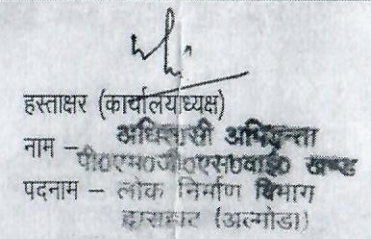 हस्ताक्षर (कार्यालयाध्यक्ष)
नाम – अधिशासी अभियन्ता
पी०एम०जी०एस०वाई० खण्ड
पदनाम – लोक निर्माण विभाग
(अल्मोडा)